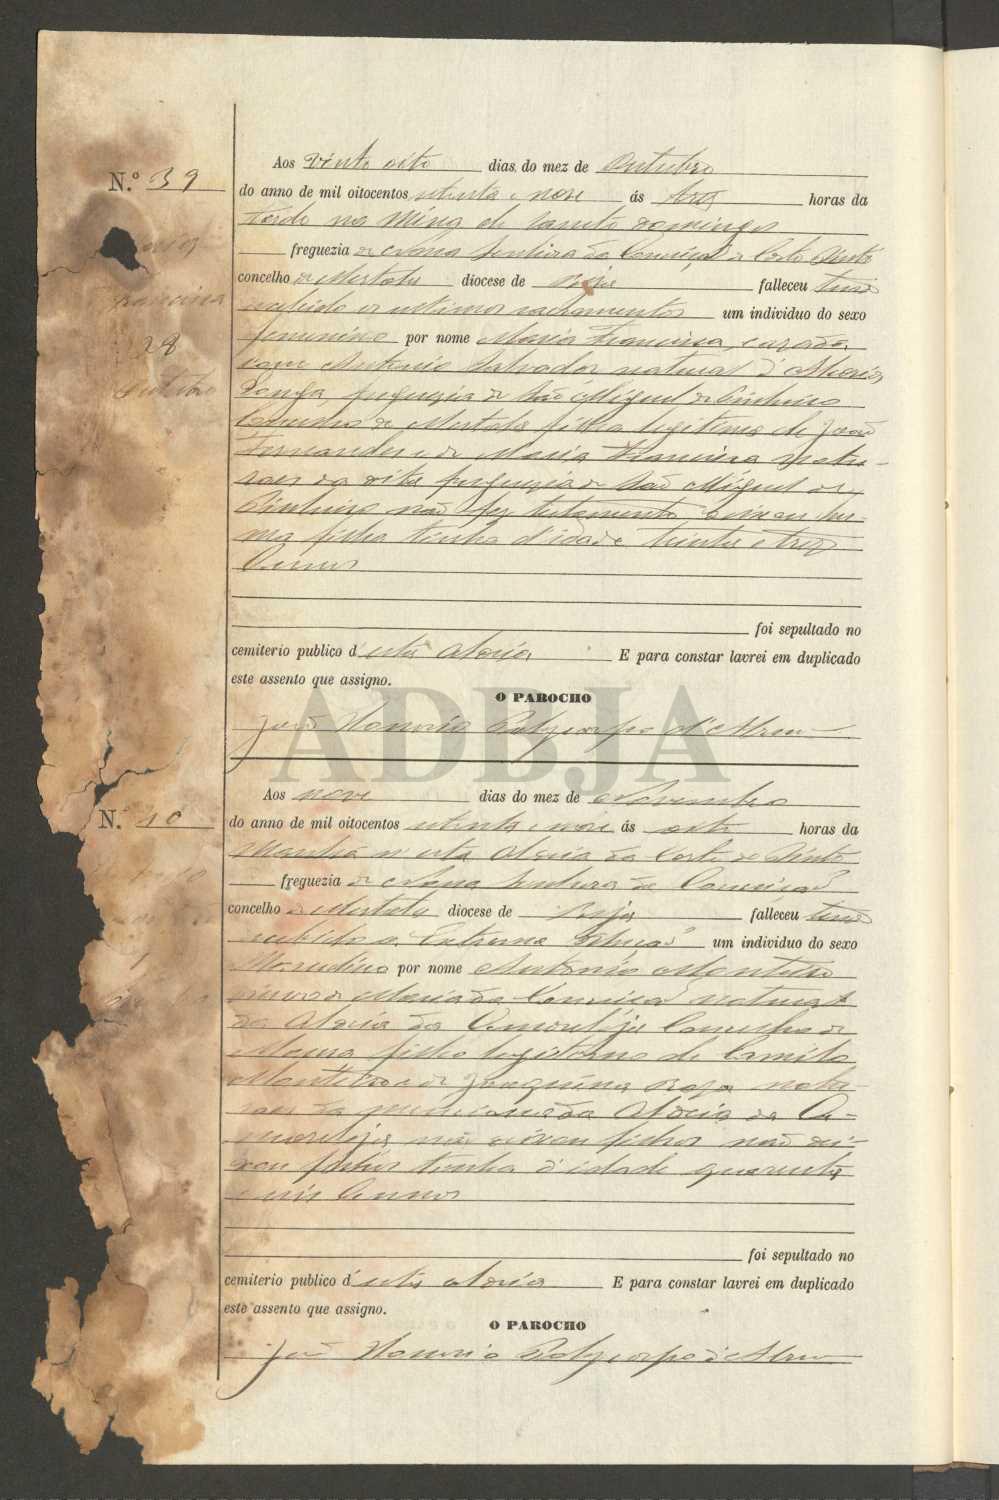 N.º 39
Maria
Francisca
28
Outubro
Aos vinte oito dias do mez de Outubro
do anno de mil oitocentos oitenta e nove ás tres horas da
tarde na Mina de Santo Domingos
freguezia de Nossa Senhora da Conceição de Corte Pinto
concelho de Mertola diocese de Beja falleceu tendo
recebido os ultimos sacramentos um individuo do sexo
feminino por nome Maria Francisca, cazada
com Antonio Salvador natural d'
Longa, freguezia de São Miguel do Pinheiro
Concelho de Mertola filha legitima de João
Fernandes e de Maria Francisca natu-
raes da dita freguezia de São Miguel do
Pinheiro não fez testamento deixou hu-
ma filha tinha d'idade trinta e tres
Annos
foi sepultado no
cemiterio publico d'esta Aldeia E para constar lavrei em duplicado
este assento que assigno.
O PAROCHO
João Honorio Polycarpo d'Abreu
ADBJA
N.º 40
Aos nove dias do mez de Novembro
do anno de mil oitocentos oitenta e nove ás oito horas da
Manhã n'esta Aldeia da Corte do Pinto
freguezia de Nossa Senhora da Conceição
concelho de Mertola diocese de Beja falleceu tendo
recebido a Extrema Unção um individuo do sexo
Masculino por nome Antonio Monteiro
viuvo de Maria da Conceição natural
da Aldeia da Amareleja Concelho de
Moura filho legitimo de Camilo
Monteiro e de Joaquina Roza natu-
raes da mencionada Aldeia da A-
mareleja não deixou filhos não dei-
xou filhos tinha d'idade quarenta
e seis Annos
foi sepultado no
cemiterio publico d'esta Aldeia E para constar lavrei em duplicado
este assento que assigno.
O PAROCHO
João Honorio Polycarpo d'Abreu